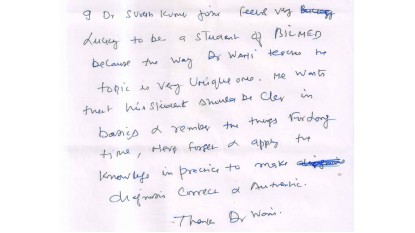 I Dr Suresh Kumar Join feels very
Lucky to be a student of BILMED
because the way Dr Wani teaches the
topic is very Unique one. He wants
that his student should be Cler in
basics & rember the things for long
time, Here forget & apply the
knowledge in practice to make
diagnosis Correct & Authentic.
Thank Dr Wani.